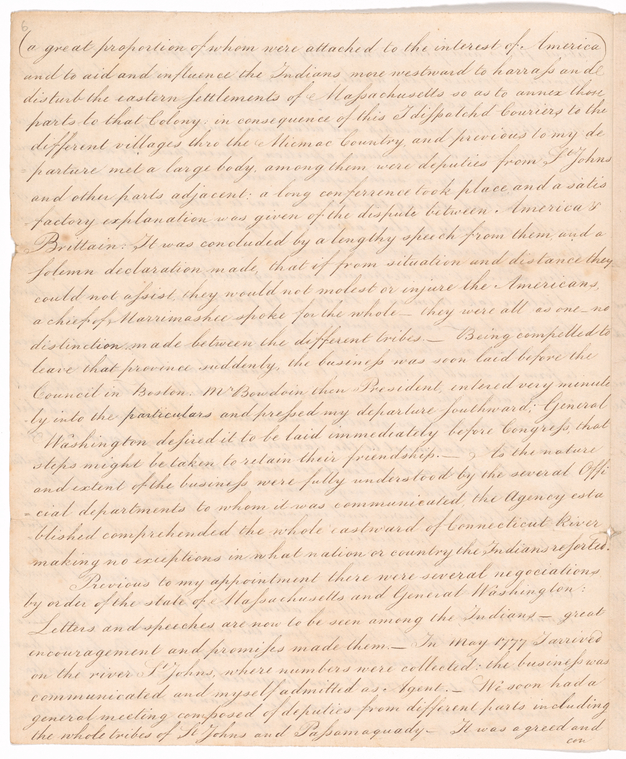 6
(a great proportion of whom were attached to the interest of America)
and to aid and influence the Indians more westward to harrass and
disturb the eastern settlements of Massachusetts so as to annex those
parts to that Colony: in consequence of this I dispatchd Couriers to the
different villages thro the Micmac Country, and previous to my de
parture met a large body, among them were deputies from St Johns
and other parts adjacent: a long conferrence took place and a satis
factory explanation was given of the dispute between America &
Brittain: It was concluded by a lengthy speech from them, and a
solemn declaration made, that if from situation and distance they
could not assist, they would not molest or injure the Americans,
a chief of Marrimashee spoke for the whole— they were all as one— no
distinction made between the different tribes.— Being compelled to
leave that province suddenly, the business was soon laid before the
Council in Boston. Mr Bowdoin then President, entered very minute
ly into the particulars and pressed my departure southward; General
Washington desired it to be laid immediately before Congress, that
steps might be taken to retain their friendship.— As the nature
and extent of the business were fully understood by the several Offi
cial departments to whom it was communicated, the Agency esta
blished comprehended the whole eastward of Connecticut River
making no exceptions in what nation or country the Indians resorted.
Previous to my appointment there were several negociations
by order of the state of Massachusetts and General Washington:
Letters and speeches are now to be seen among the Indians— great
encouragement and promises made them.— In May 1777 I arrived
on the river St Johns, where numbers were collected: the business was
communicated and myself admitted as Agent.— We soon had a
general meeting composed of deputies from different parts including
the whole tribes of St Johns and Passamaquady— It was agreed and
con